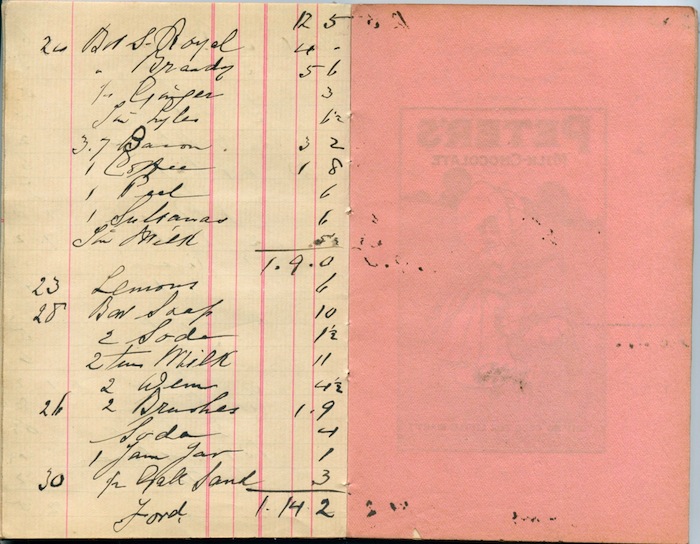 12 5
20 Bot S. Royal 4 -
" Brandy 5 6
Ginger 3
Tin Lyles 6½
3.7 Bacon . 3 2
1 Coffee 1 8
1 Peel 6
1 Sultanas 6
Tin Milk 5½
1.9.0
23 Lemons 6
28 Bar Soap 10
2 Soda 1½
2 tins Milk 11
2 4½
26 2 Brushes 1.9
Soda 4
1 Jam Jar 1
30 Sand 3
Ford. 1.14 2
PETER'S
MILK-CHOCOLATE